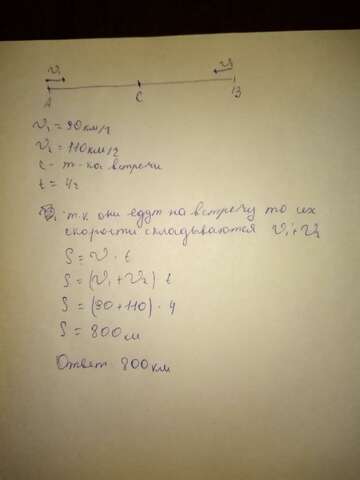 V₁ V₂
A C B
V₁ = 90 км/ч
V₂ = 110 км/ч
C - т-ка встречи
t = 4ч
т.к они едут на встречу то их
скорости складываются V₁+V₂
S = V · t
S = (V₁ + V₂) t
S = (90 + 110) · 4
S = 800 км
Ответ 800 км